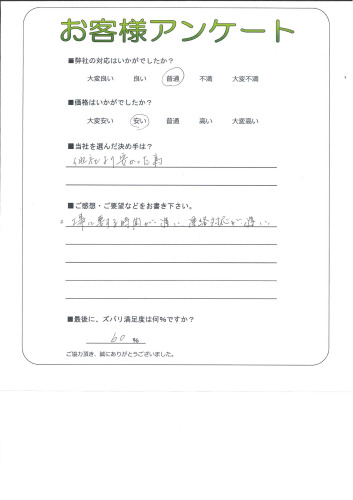 お客様アンケート
■弊社の対応はいかがでしたか？
大変良い 良い 普通 不満 大変不満
■価格はいかがでしたか？
大変安い 安い 普通 高い 大変高い
■当社を選んだ決め手は？
他社より安かった為
■ご感想・ご要望などをお書き下さい。
工事に要する時間が遅い 連絡対応が遅い
■最後に、ズバリ満足度は何%ですか？
60 %
ご協力頂き、誠にありがとうございました。